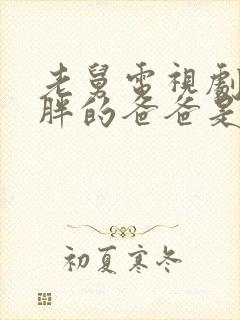 老舅電視劇
胖的爸爸是
初夏寒冬